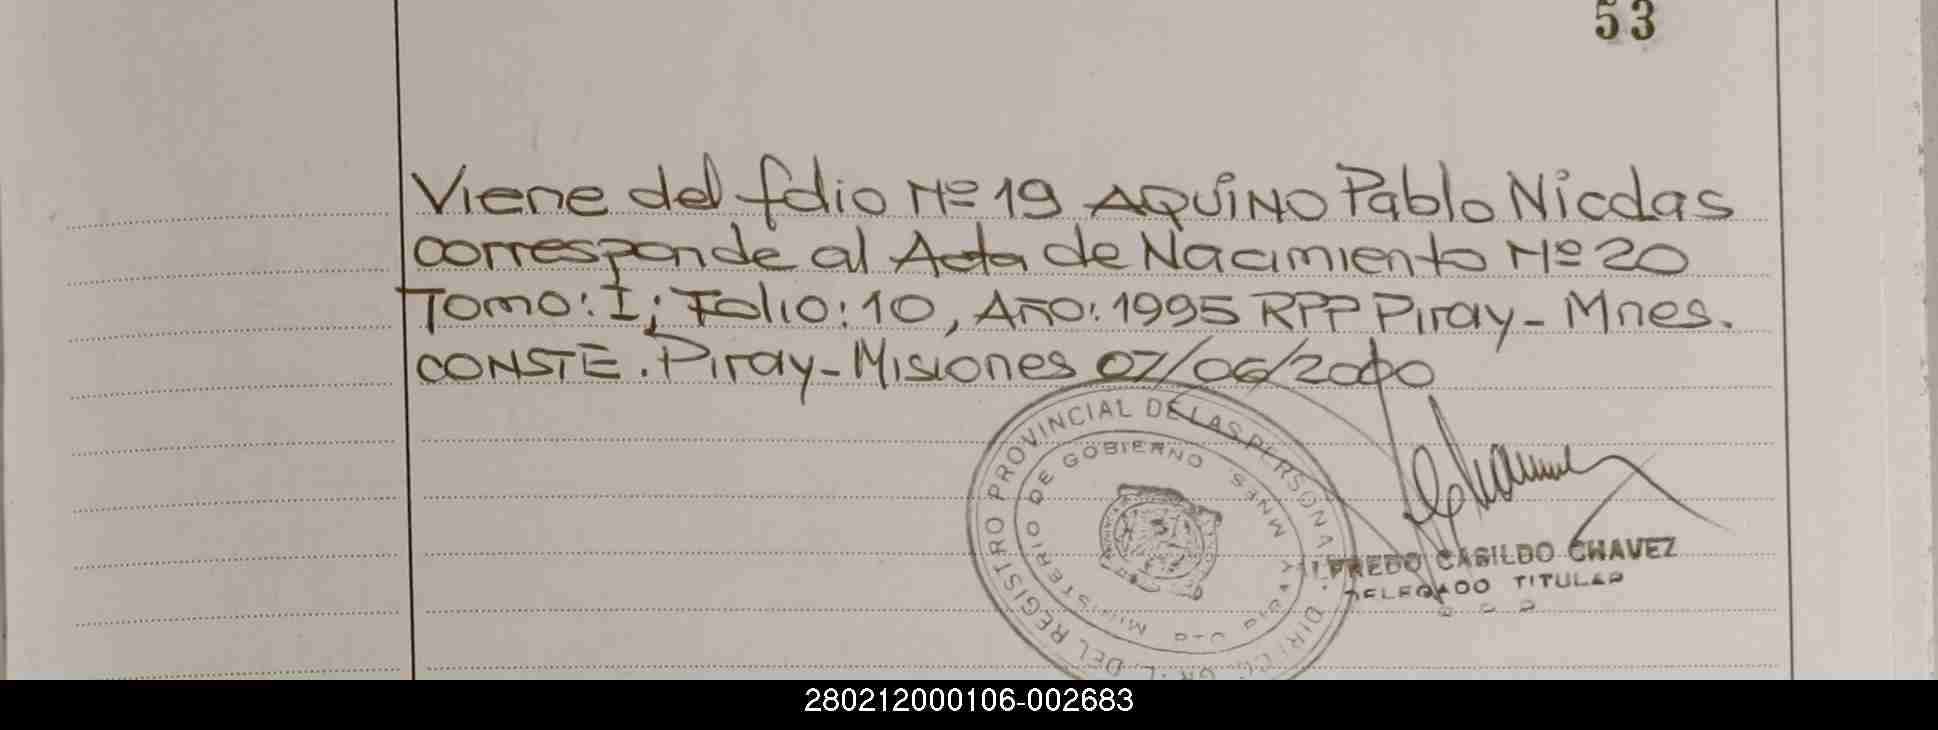 53
Viene del folio Nº 19 AQUINO Pablo Nicolas
corresponde al Acta de Nacimiento Nº 20
Tomo: I; Folio: 10, Año: 1995 RPP Piray - Mnes.
CONSTE. Piray - Misiones 07/06/2000
DEL REGISTRO PROVINCIAL DE LAS PERSONAS
MINISTERIO DE GOBIERNO
MNES.
CABILDO CHAVEZ
DELEGADO TITULAR
280212000106-002683